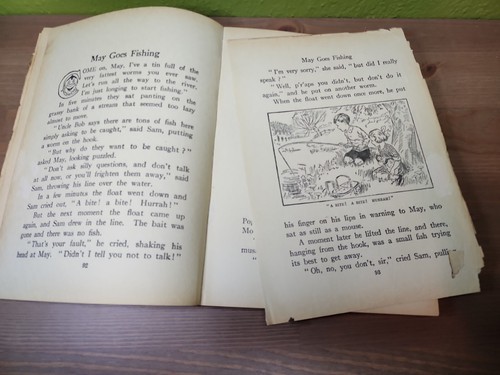 May Goes Fishing
COME on, May, I've a tin full of the
very fattest worms you ever saw,
Let's run all the way to the river,
I'm just longing to start fishing."
In five minutes they sat panting on the
grassy bank of a stream that seemed too lazy
almost to move.
"Uncle Bob says there are tons of fish here
simply asking to be caught," said Sam, putting
a worm on the hook.
"But why do they want to be caught?"
asked May, looking puzzled.
"Don't ask silly questions, and don't talk
at all now, or you'll frighten them away," said
Sam, throwing his line over the water.
In a few minutes the float went down and
Sam cried out, "A bite! a bite! Hurrah!"
But the next moment the float came up
again, and Sam drew in the line. The bait was
gone and there was no fish.
"That's your fault," he cried, shaking his
head at May. "Didn't I tell you not to talk!"
May Goes Fishing
"I'm very sorry," she said, "but did I really
speak?"
"Well, p'r'aps you didn't, but don't do it
again," and he put on another worm.
When the float went down once more, he put
"A BITE! A BITE! HURRAH!"
his finger on his lips in warning to May, who
sat as still as a mouse.
A moment later he lifted the line, and there,
hanging from the hook, was a small fish trying
its best to get away.
"Oh, no, you don't, sir," cried Sam,